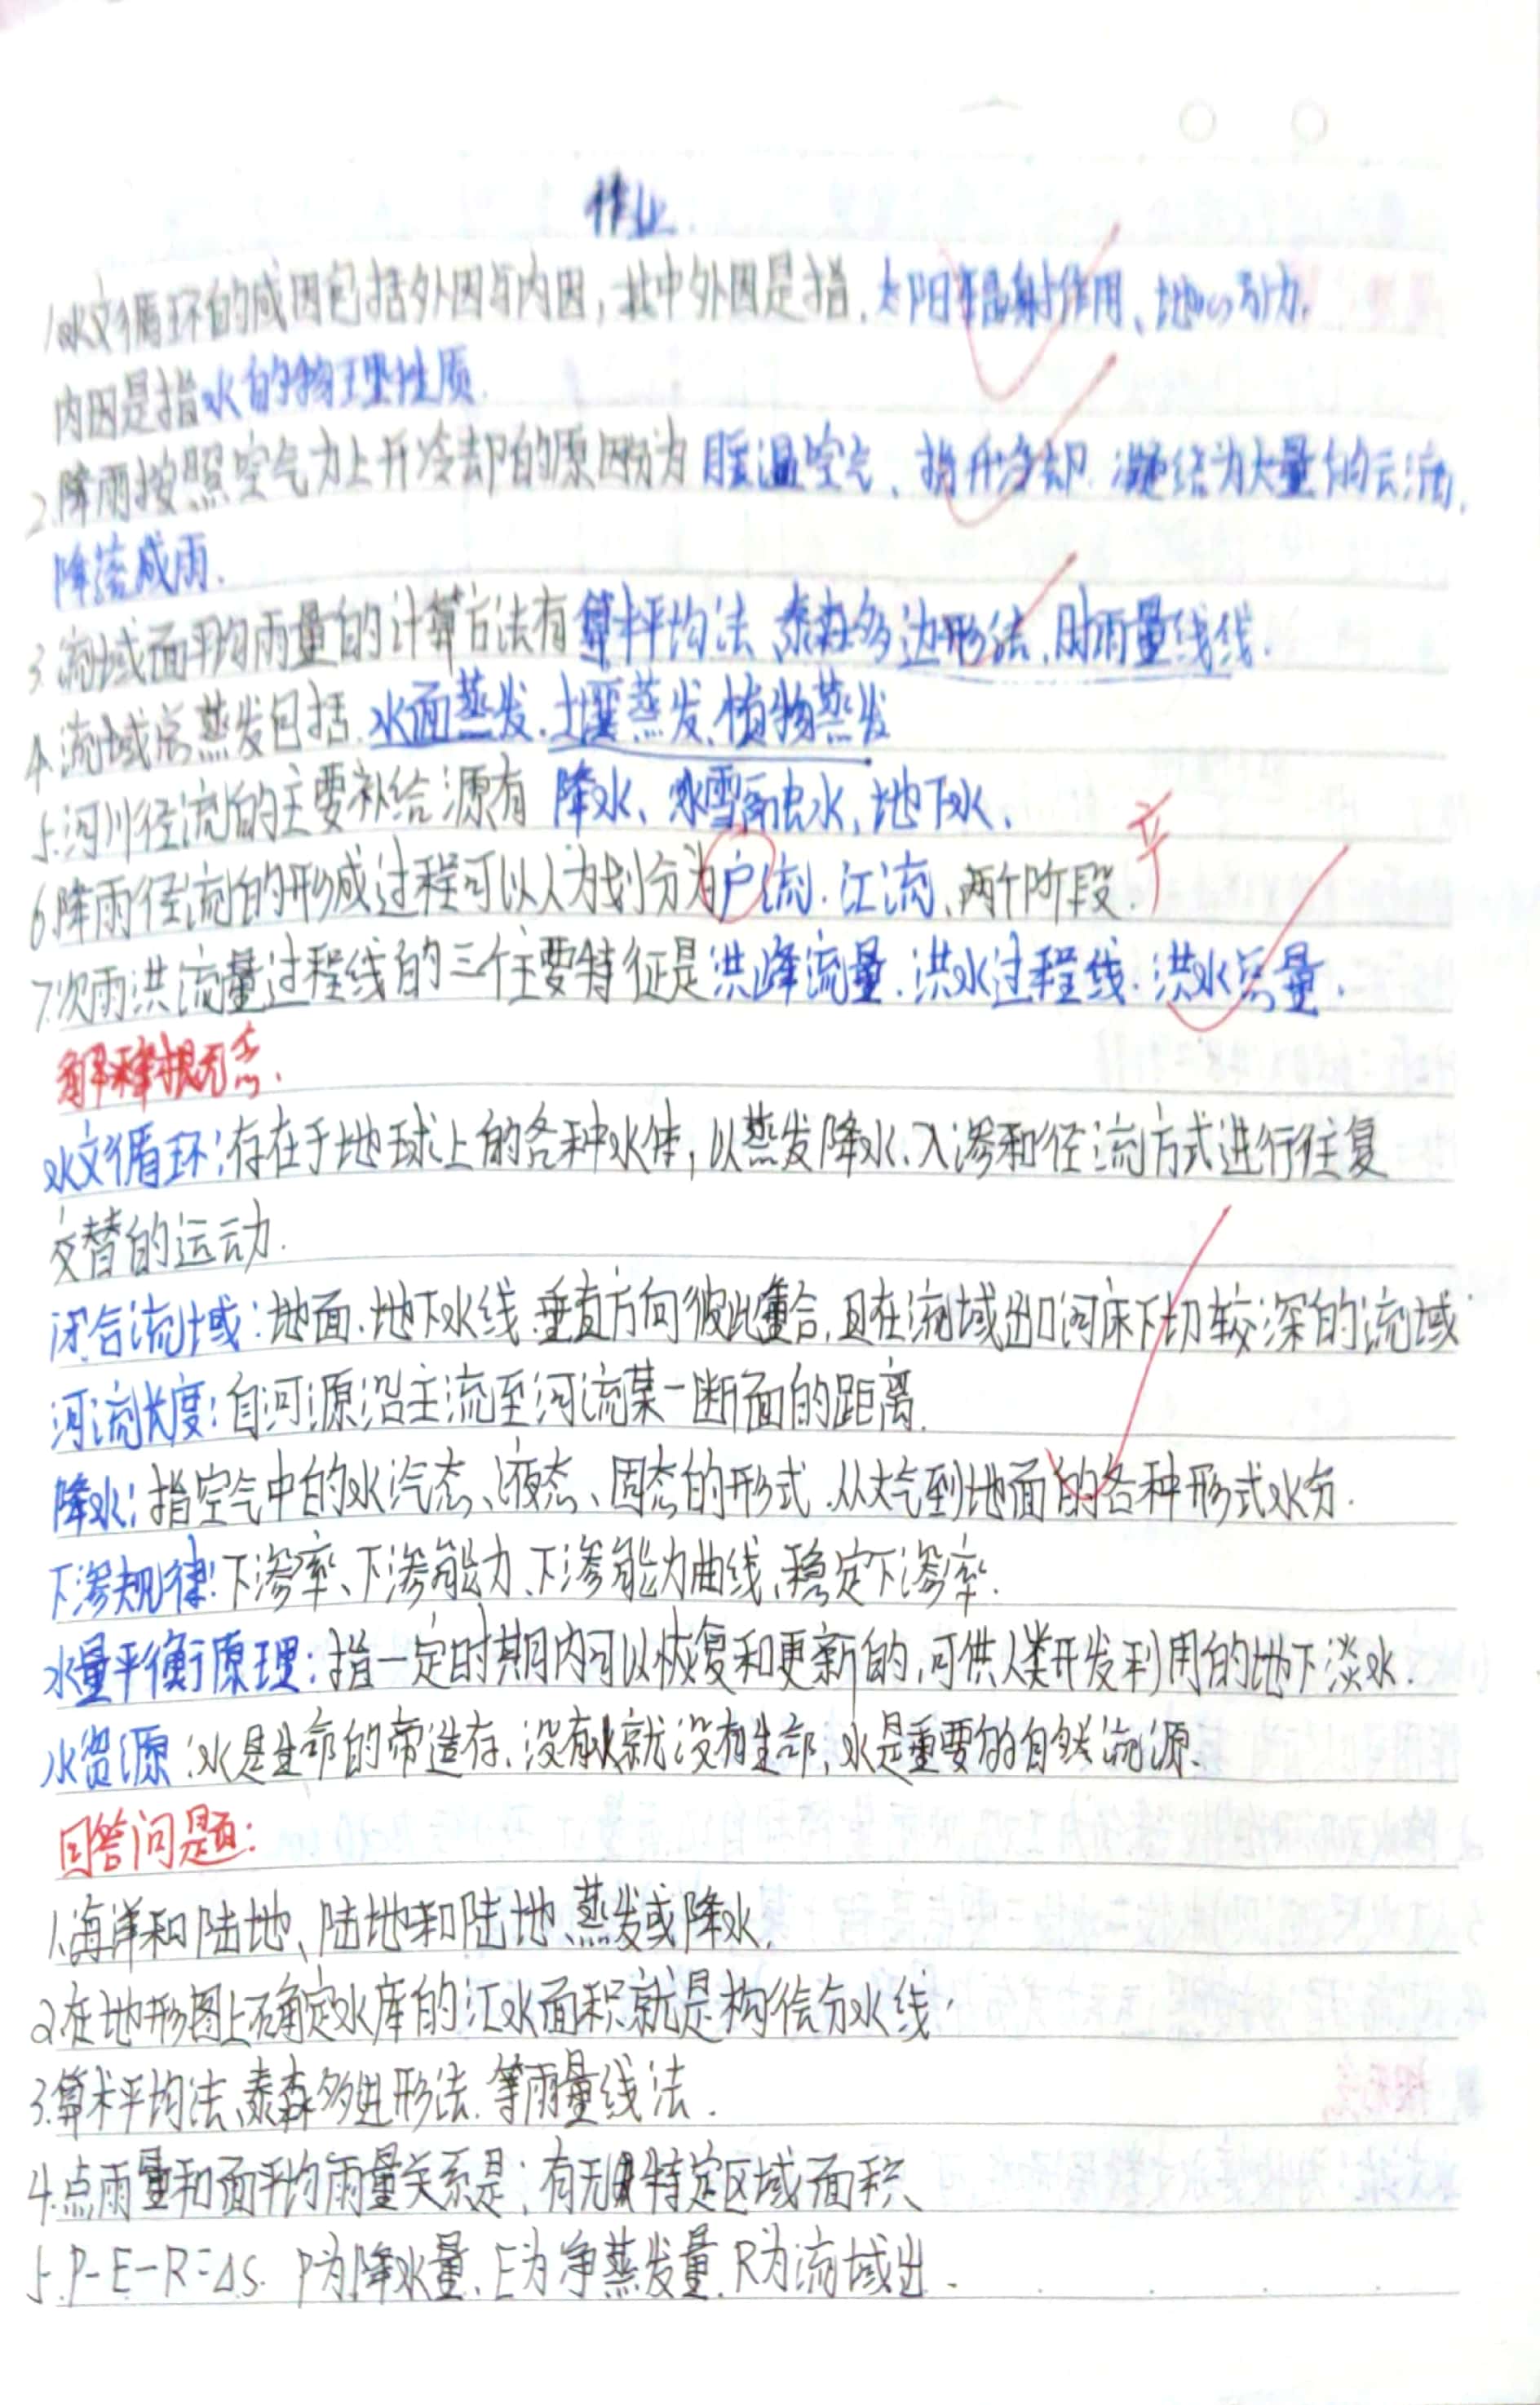 作业
1.水文循环的成因包括外因与内因,其中外因是指,太阳辐射作用、地心引力,
内因是指水的物理性质.
2.降雨按照空气力上升冷却的原因分为 暖温空气、抬升冷却.凝结为大量的云滴,
降落成雨.
3.流域面平均雨量的计算方法有算术平均法、泰森多边形法、雨量线线.
4.流域总蒸发包括.水面蒸发.土壤蒸发.植物蒸发
5.河川径流的主要补给源有 降水、冰雪融水,地下水、
6.降雨径流的形成过程可以人为划分为户流.汇流、两个阶段. 产
7.次雨洪流量过程线的三个主要特征是洪峰流量.洪水过程线.洪水总量.
解释概念.
水文循环:存在于地球上的各种水体,以蒸发降水、入渗和径流方式进行往复
交替的运动.
闭合流域:地面.地下水线垂直方向彼此重合,且在流域出口河床下切较深的流域
河流长度:自河源沿主流至河流某一断面的距离.
降水:指空气中的水汽态、液态、固态的形式.从大气到地面的各种形式水分.
下渗规律:下渗率、下渗能力、下渗能力曲线、稳定下渗率.
水量平衡原理:指一定时期内可以恢复和更新的,可供人类开发利用的地下淡水.
水资源:水是生命的帝造存.没有水就没有生命,水是重要的自然流源.
回答问题:
1.海洋和陆地、陆地和陆地、蒸发或降水.
2.在地形图上确定水库的汇水面积就是构绘分水线;
3.算术平均法、泰森多边形法.等雨量线法.
4.点雨量和面平均雨量关系是:有无特定区域面积
5.P-E-R=ΔS. P为降水量、E为净蒸发量.R为流域出.